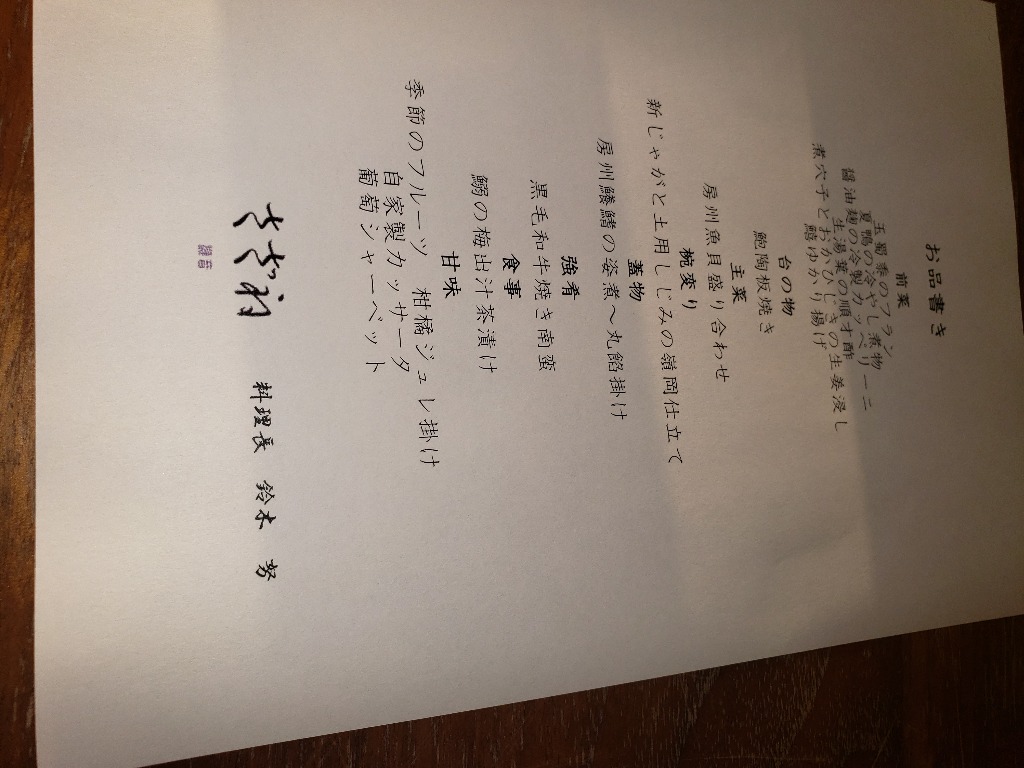 お品書き
前菜
玉蜀黍のフラン
夏鴨の冷やし煮物
醤油麹の冷製カッペリーニ
生湯葉の順才酢
煮穴子とおかひじきの生姜浸し
ゆかり揚げ
台の物
鮑陶板焼き
主菜
房州魚貝盛り合わせ
椀変り
新じゃがと土用しじみの嶺岡仕立て
蓋物
房州鱶鰭の姿煮～丸餡掛け
強肴
黒毛和牛焼き南蛮
食事
鰯の梅出汁茶漬け
甘味
季節のフルーツ 柑橘ジュレ掛け
自家製カッサータ
葡萄シャーベット
料理長 鈴木 努